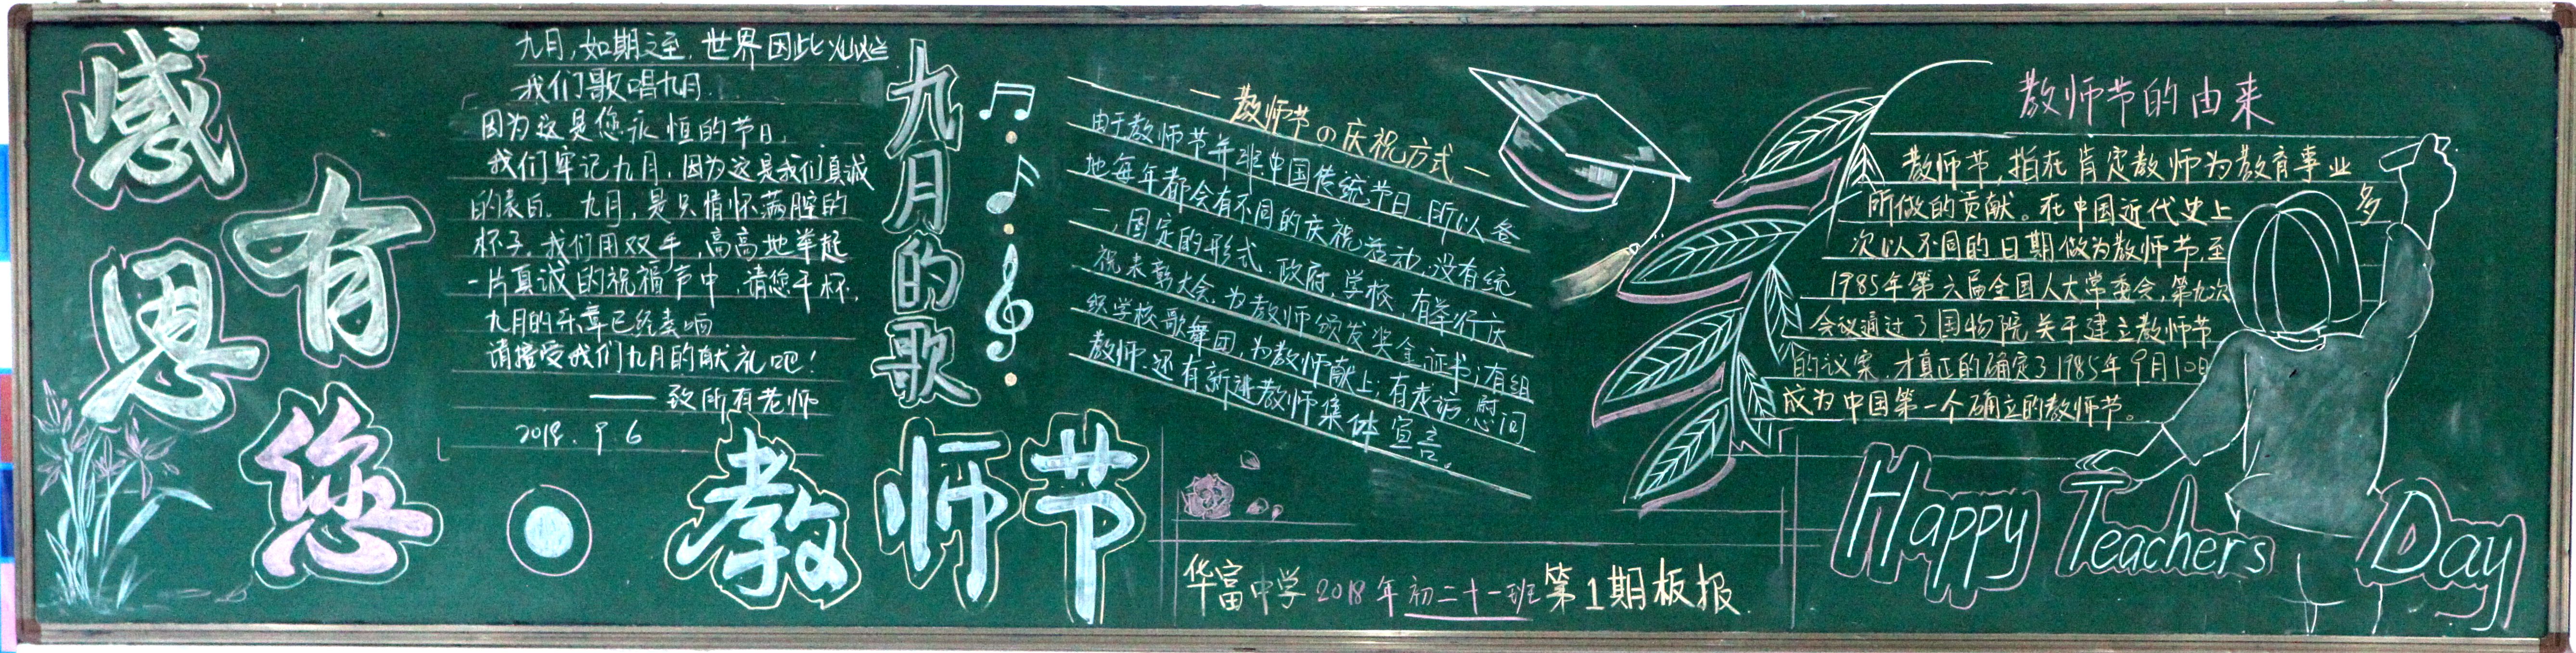 感恩
有您
九月，如期之至，世界因此灿烂
我们歌唱九月．
因为这是您永恒的节日，
我们牢记九月，因为这是我们真诚
的表白．九月，是只情怀满腔的
杯子．我们用双手，高高地举起
一片真诚的祝福声中，请您干杯，
九月的乐章已经奏响
请接受我们九月的献礼吧！
——致所有老师
2018．9．6
九月的歌
教师节
—教师节の庆祝方式—
由于教师节年班中国传统节日，所以各
地每年都会有不同的庆祝活动，没有统
一，固定的形式．政府，学校，有举行庆
祝表彰大会，为教师颁发奖金，证书；有组
织学校歌舞团，为教师献上；有走访，慰问
教师．还有新进教师集体宣言。
华富中学2018年初二十一班第1期板报
教师节的由来
教师节，指在肯定教师为教育事业
所做的贡献。在中国近代史上多
次以不同的日期做为教师节，至
1985年第六届全国人大常委会，第九次
会议通过了国物院关于建立教师节
的议案，才真正的确定了1985年9月10日
成为中国第一个确立的教师节。
Happy Teachers Day